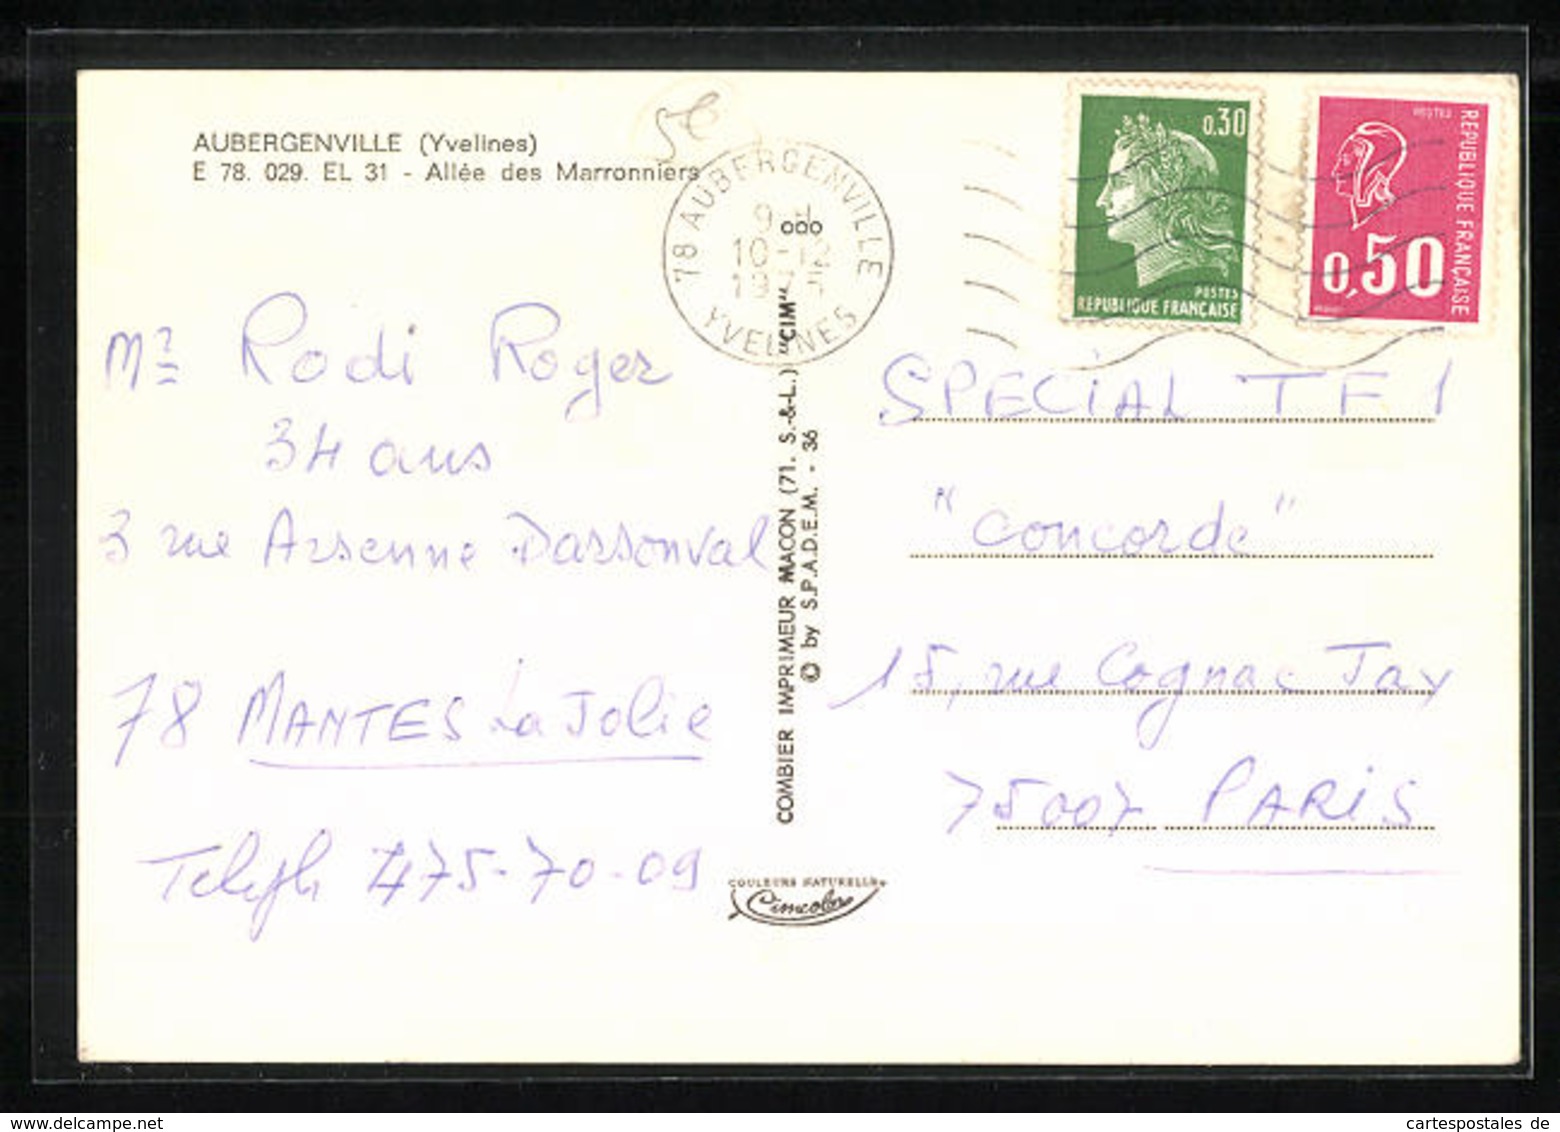 AUBERGENVILLE (Yvelines)
E 78. 029. EL 31 - Allée des Marronniers
5€
78 AUBERGENVILLE
9 H
10-12
YVELINES
0.30
POSTES
REPUBLIQUE FRANÇAISE
POSTES
REPUBLIQUE FRANÇAISE
0,50
Mr Rodi Roger
34 ans
3 rue Arsenne Darsonval
78 MANTES La Jolie
Teleph 475-70-09
COMBIER IMPRIMEUR MACON (71. S.-&-L.) "CIM"
© by S.P.A.D.E.M. - 36
COULEURS NATURELLES
Cimcolor
SPECIAL TF1
"Concorde"
15, rue Cognac Jay
75007 PARIS
cartespostales de